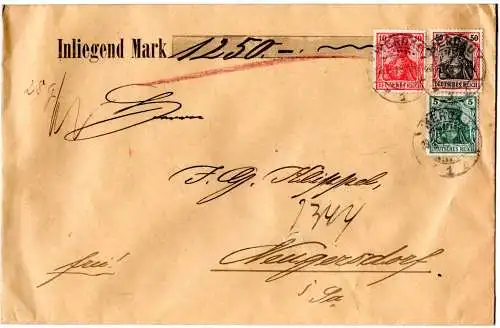 Inliegend Mark 1250-.
10 10
DEUTSCHES REICH
50 50
DEUTSCHES REICH
5 5
DEUTSCHES REICH
Herrn
F. G. Klippel,
1344
Neugersdorf
i/Sa
frei!